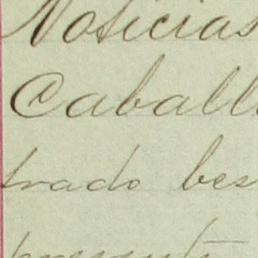 Noticias
Caball
trado bes